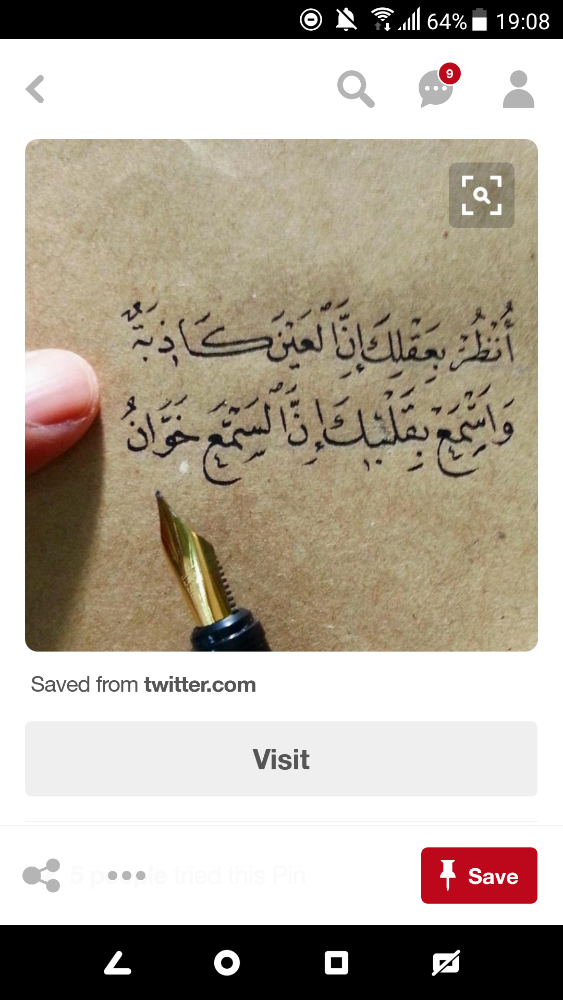 64% 19:08
9
أُنْظُرْ بِعَقْلِكَ إِنَّ الْعَيْنَ كَاذِبَةٌ
وَاسْمَعْ بِقَلْبِكَ إِنَّ السَّمْعَ خَوَّانُ
Saved from twitter.com
Visit
5 people tried this Pin
Save